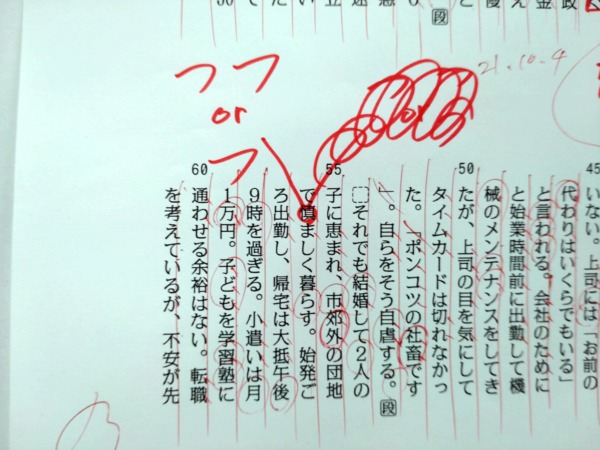 21.10.4
or
45
いない。上司には「お前の
代わりはいくらでもいる」
と言われる。会社のために
と始業時間前に出勤して機
械のメンテナンスをしてき
50
たが、上司の目を気にして
タイムカードは切れなかっ
た。「ポンコツの社畜です
」。自らをそう自虐する。段
それでも結婚して2人の
55
子に恵まれ、市郊外の団地
で慎ましく暮らす。始発ご
ろ出勤し、帰宅は大抵午後
9時を過ぎる。小遣いは月
1万円。子どもを学習塾に
60
通わせる余裕はない。転職
を考えているが、不安が先